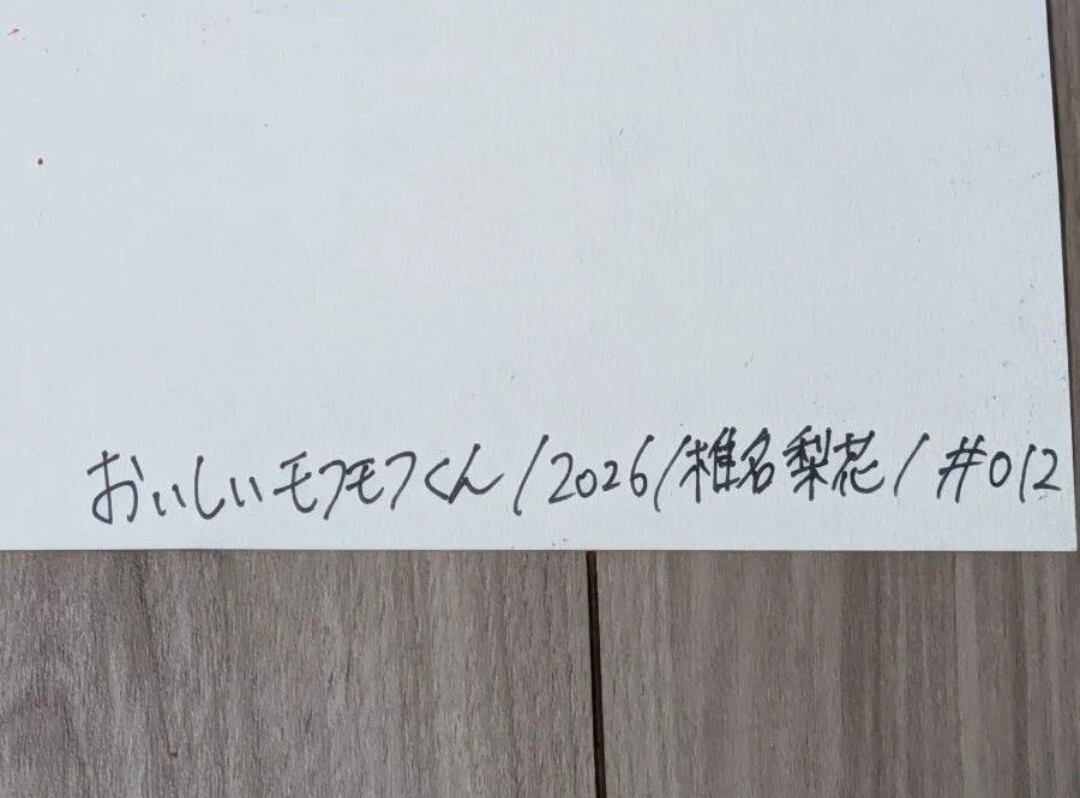 おいしいモフモフくん/2026/椎名梨花/#012